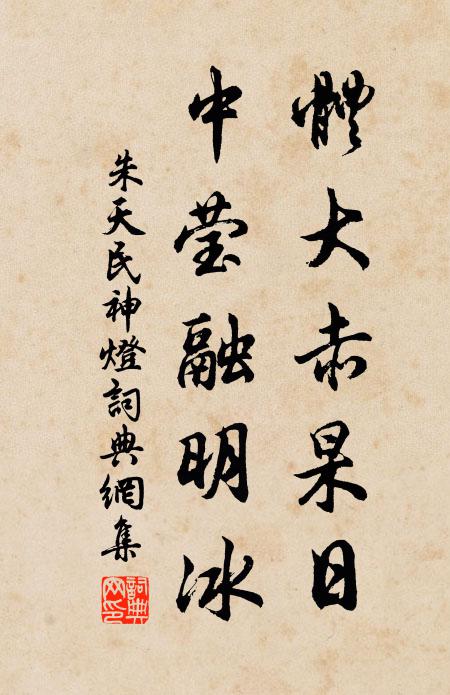 體大赤杲日
中莹融明冰
朱天民神燈詞典網集
詞典网印